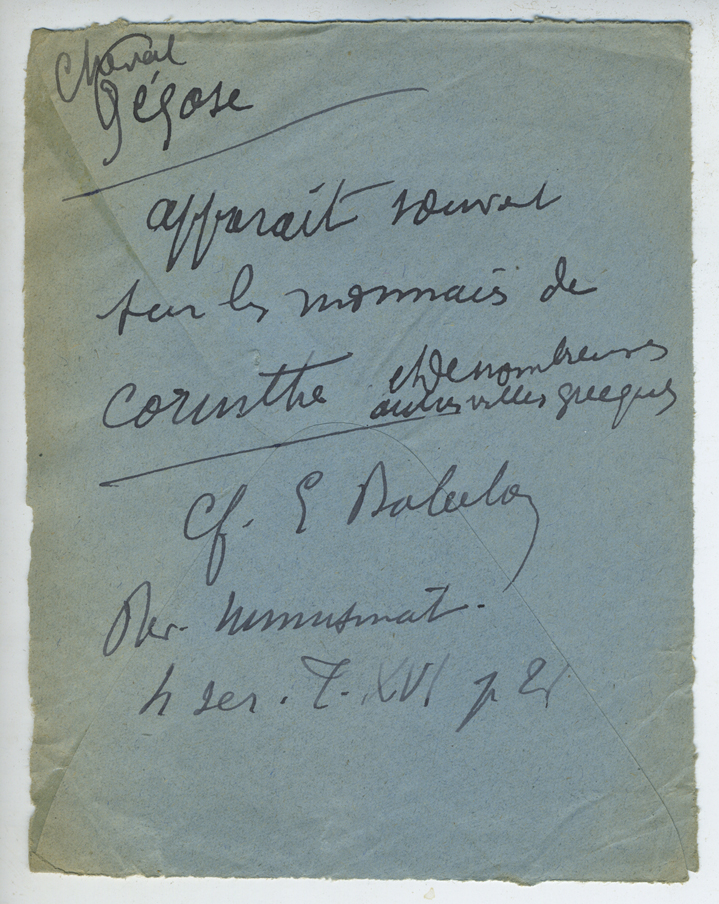 Cheval
Pégase
apparait souvent
sur les monnais de
corinthe et de nombreuses
autres villes grecques
Cf. E Babelon
Rev. Numismat.
4 ser. T. XVI p